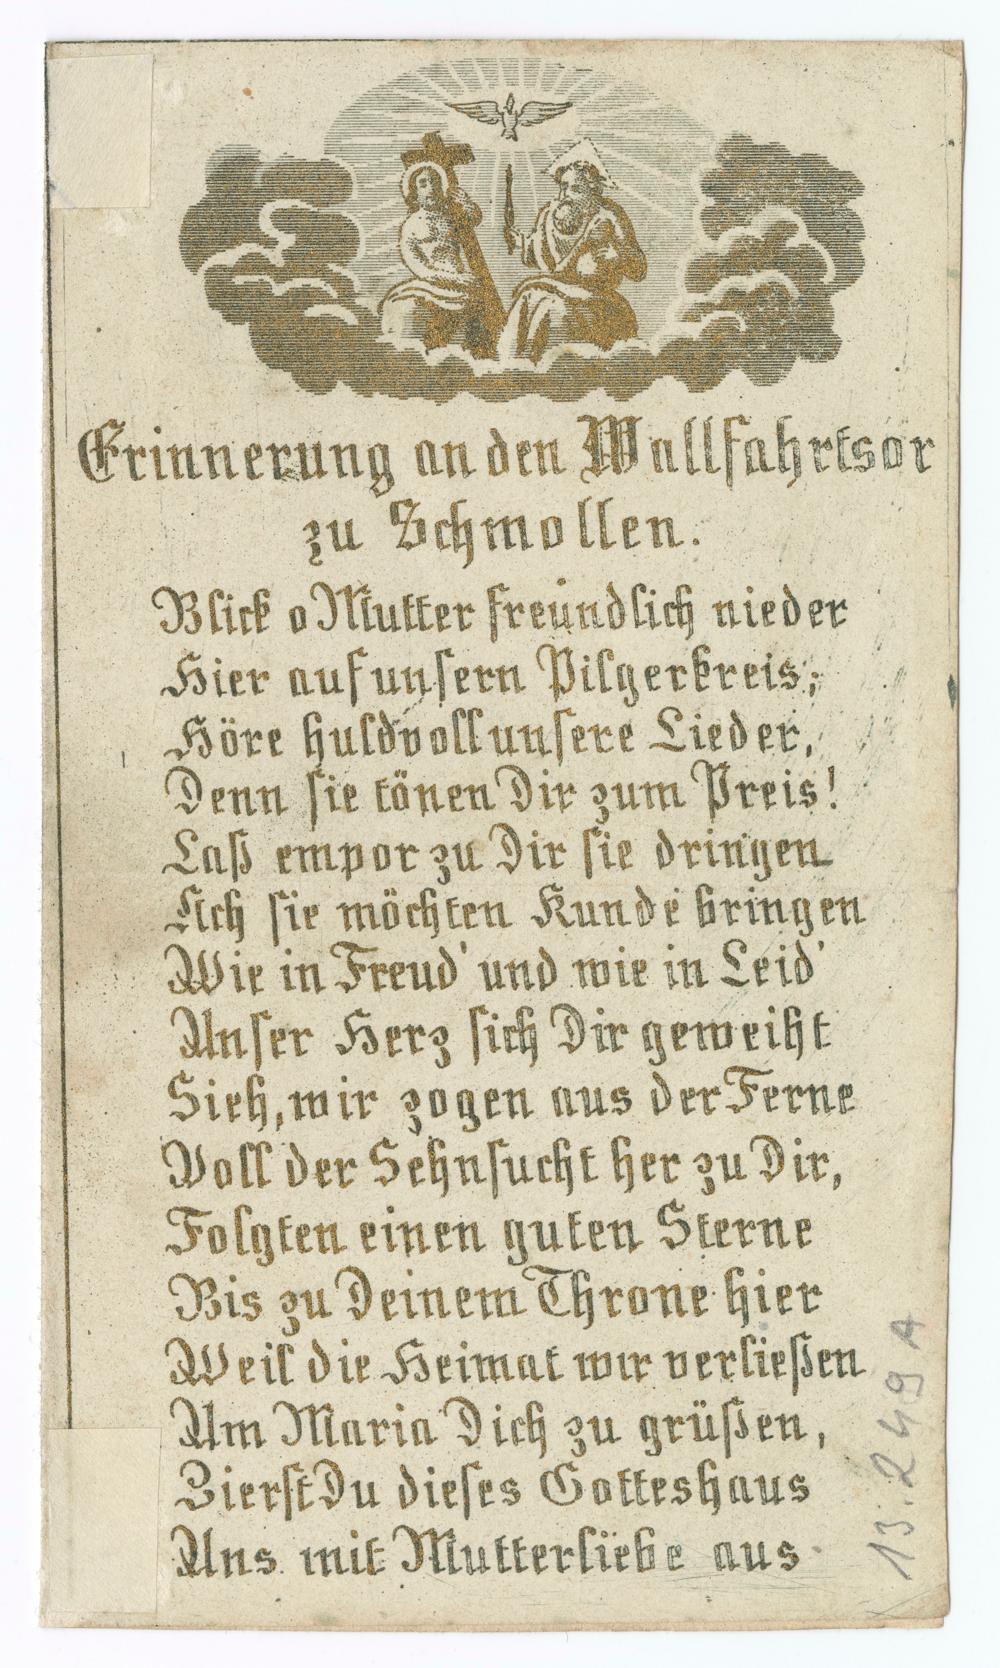 Erinnerung an den Wallfahrtsor
zu Schmollen.
Blick o Mutter freundlich nieder
Hier auf unsern Pilgerkreis;
Höre huldvoll unsere Lieder,
Denn sie tönen Dir zum Preis!
Laß empor zu Dir sie dringen
Ach sie möchten Kunde bringen
Wie in Freud' und wie in Leid'
Unser Herz sich Dir geweiht
Sieh, wir zogen aus der Ferne
Voll der Sehnsucht her zu Dir,
Folgten einen guten Sterne
Bis zu Deinem Throne hier
Weil die Heimat wir verließen
Um Maria Dich zu grüßen,
Zierst Du dieses Gotteshaus
Uns mit Mutterliebe aus
13.249 A